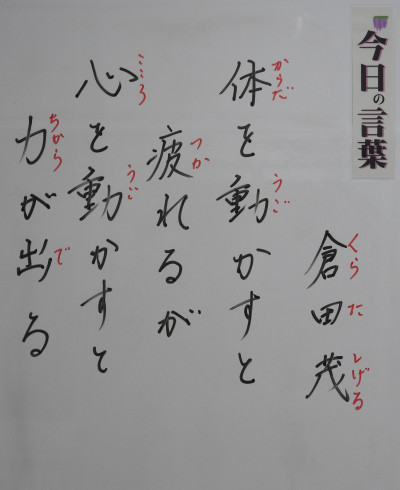 今日の言葉
倉田茂
くらたしげる
体を動かすと
からだ
うご
疲れるが
つか
心を動かすと
こころ
うご
力が出る
ちから
で